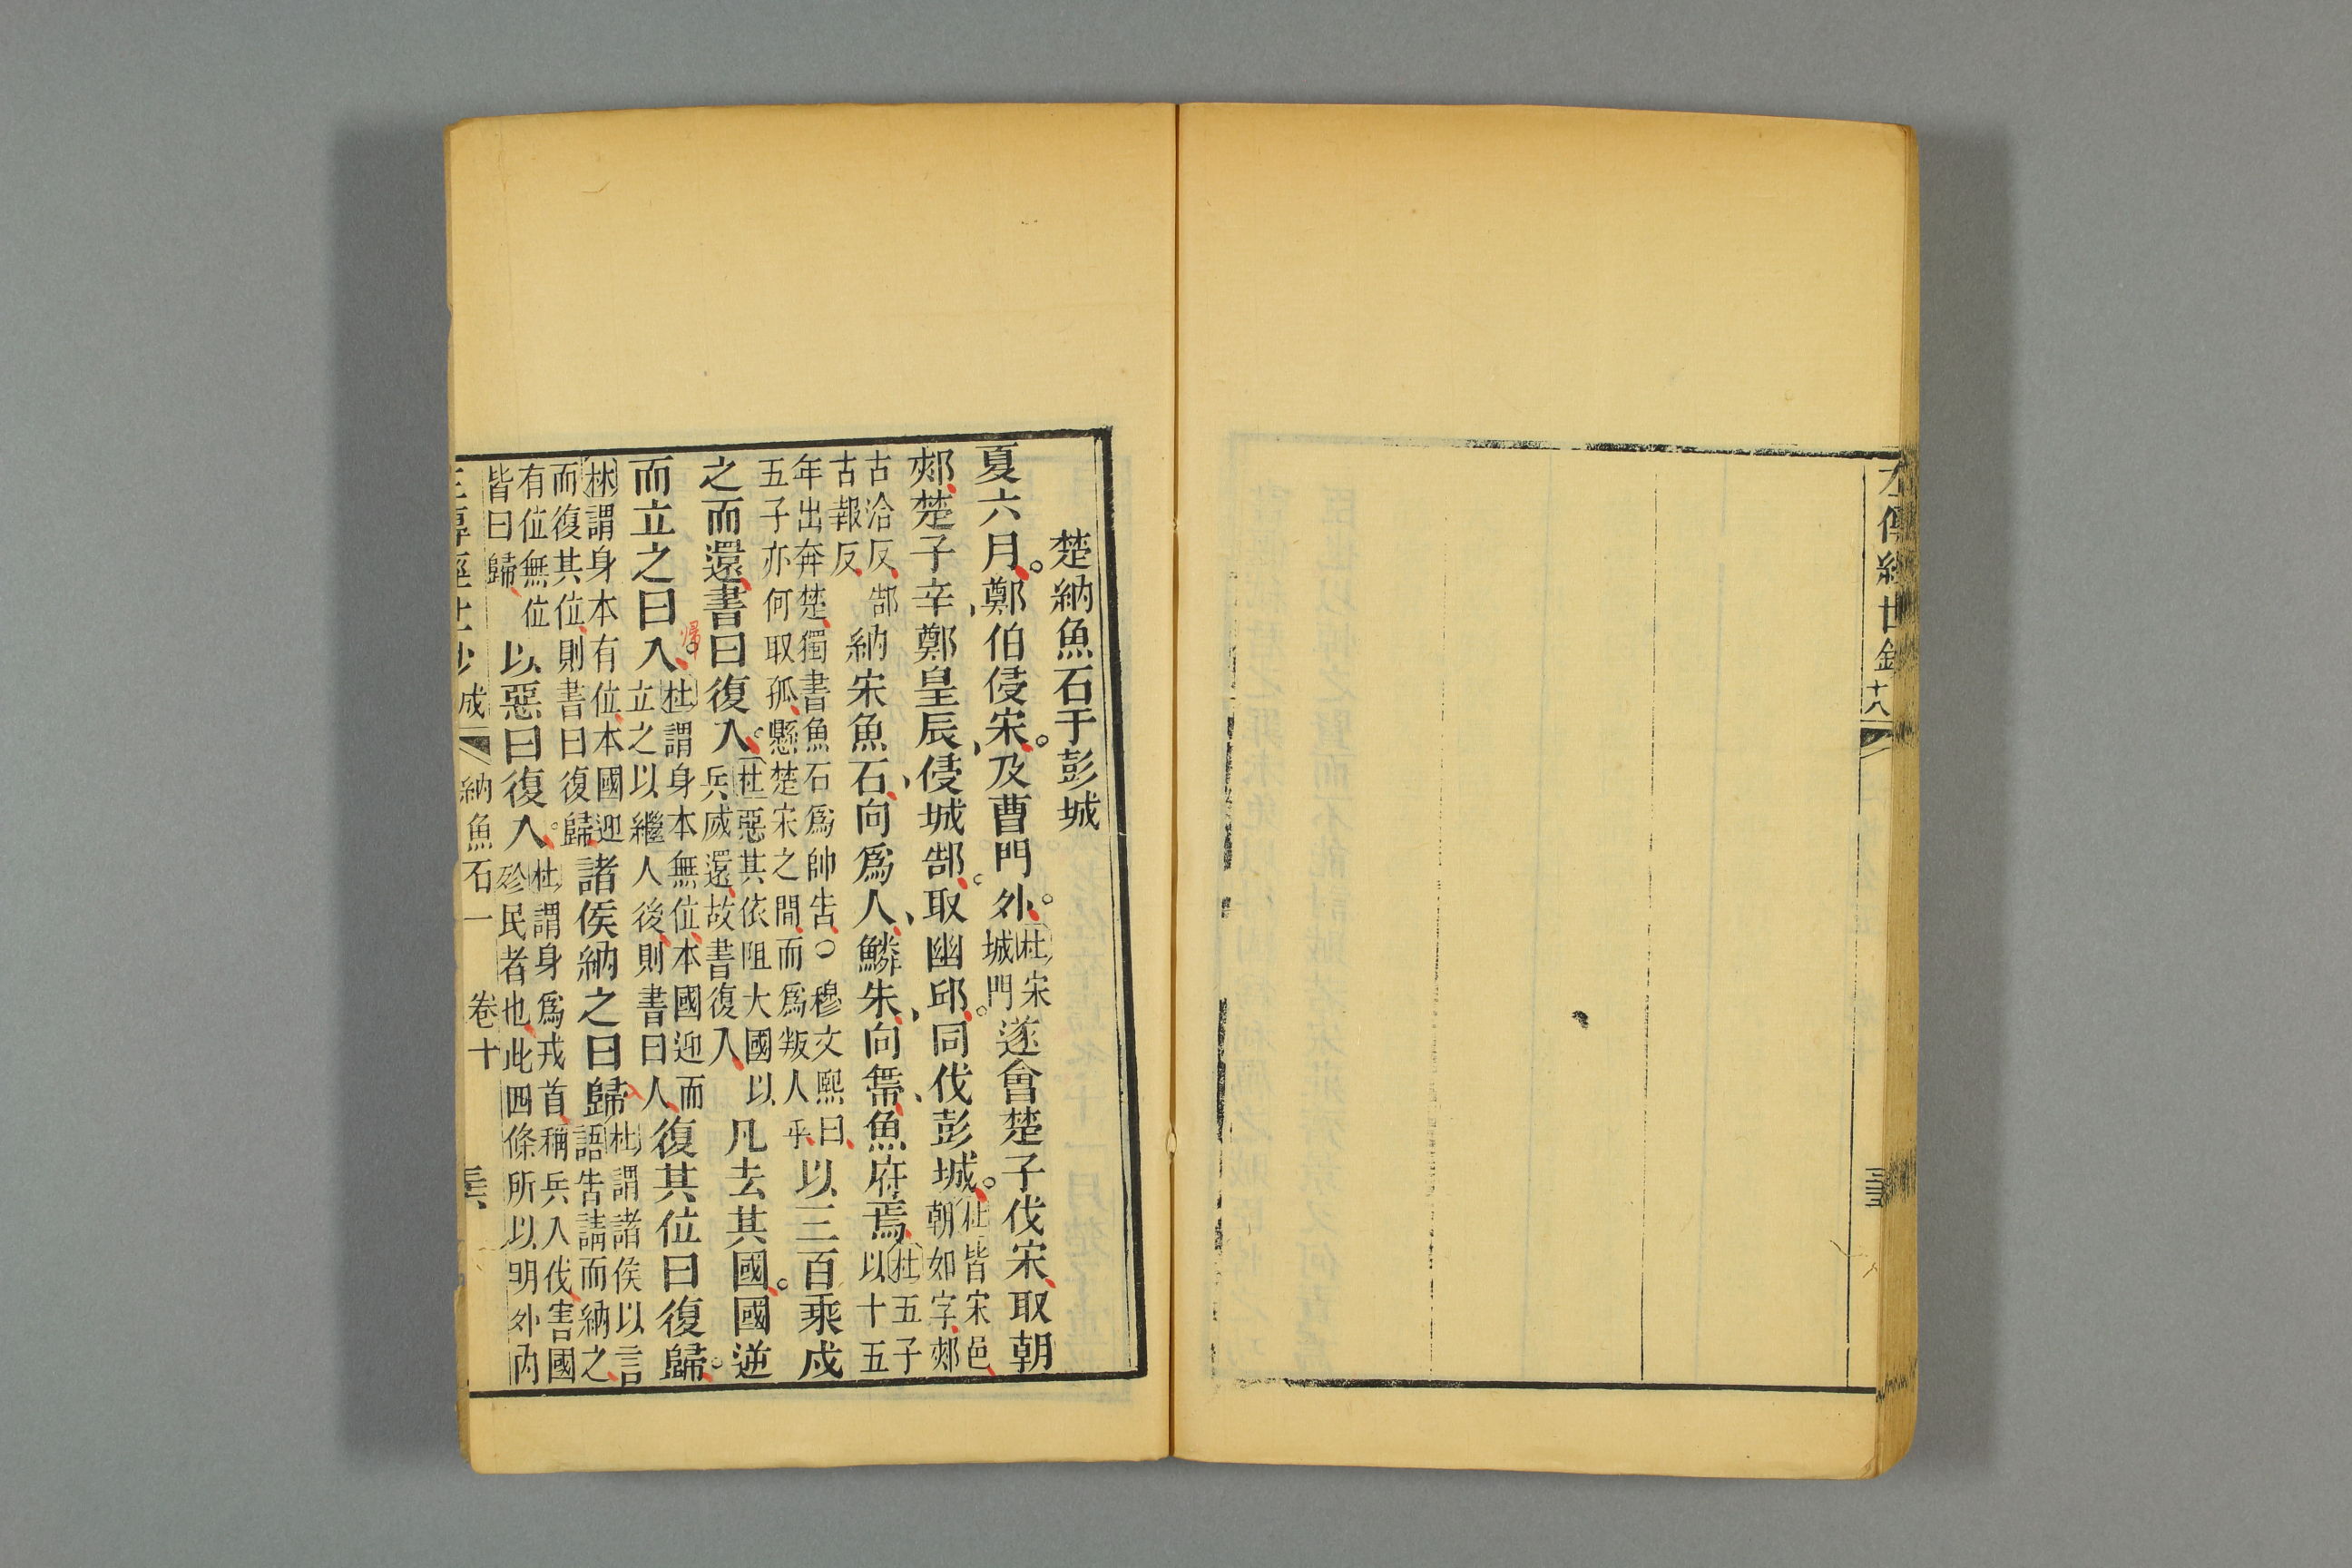 左傳經世鈔 十八
楚納魚石于彭城
夏六月。鄭伯侵宋。及曹門外。杜宋城門遂會楚子伐宋取朝
郟楚子辛、鄭皇辰、侵城郜。取幽邱。同伐彭城。杜皆宋邑朝如字郟
古洽反郜古報反納宋魚石、向爲人、鱗朱、向帶、魚府焉杜五子以十五
年出奔楚獨書魚石爲帥告○穆文熙曰五子亦何取孤懸楚宋之間而爲叛人乎以三百乘戍
之而還書曰復入。杜惡其依阻大國以兵威還故書復入凡去其國。國逆
帰
而立之曰入杜謂身本無位本國迎而立之以繼人後則書曰人復其位曰復歸。
林謂身本有位本國迎而復其位則書曰復歸諸侯納之曰歸杜謂諸侯以言語告請而納之
有位無位皆曰歸以惡曰復入。杜謂身爲戎首稱兵入伐害國殄民者也此四條所以明外內
成 納魚石一 卷十